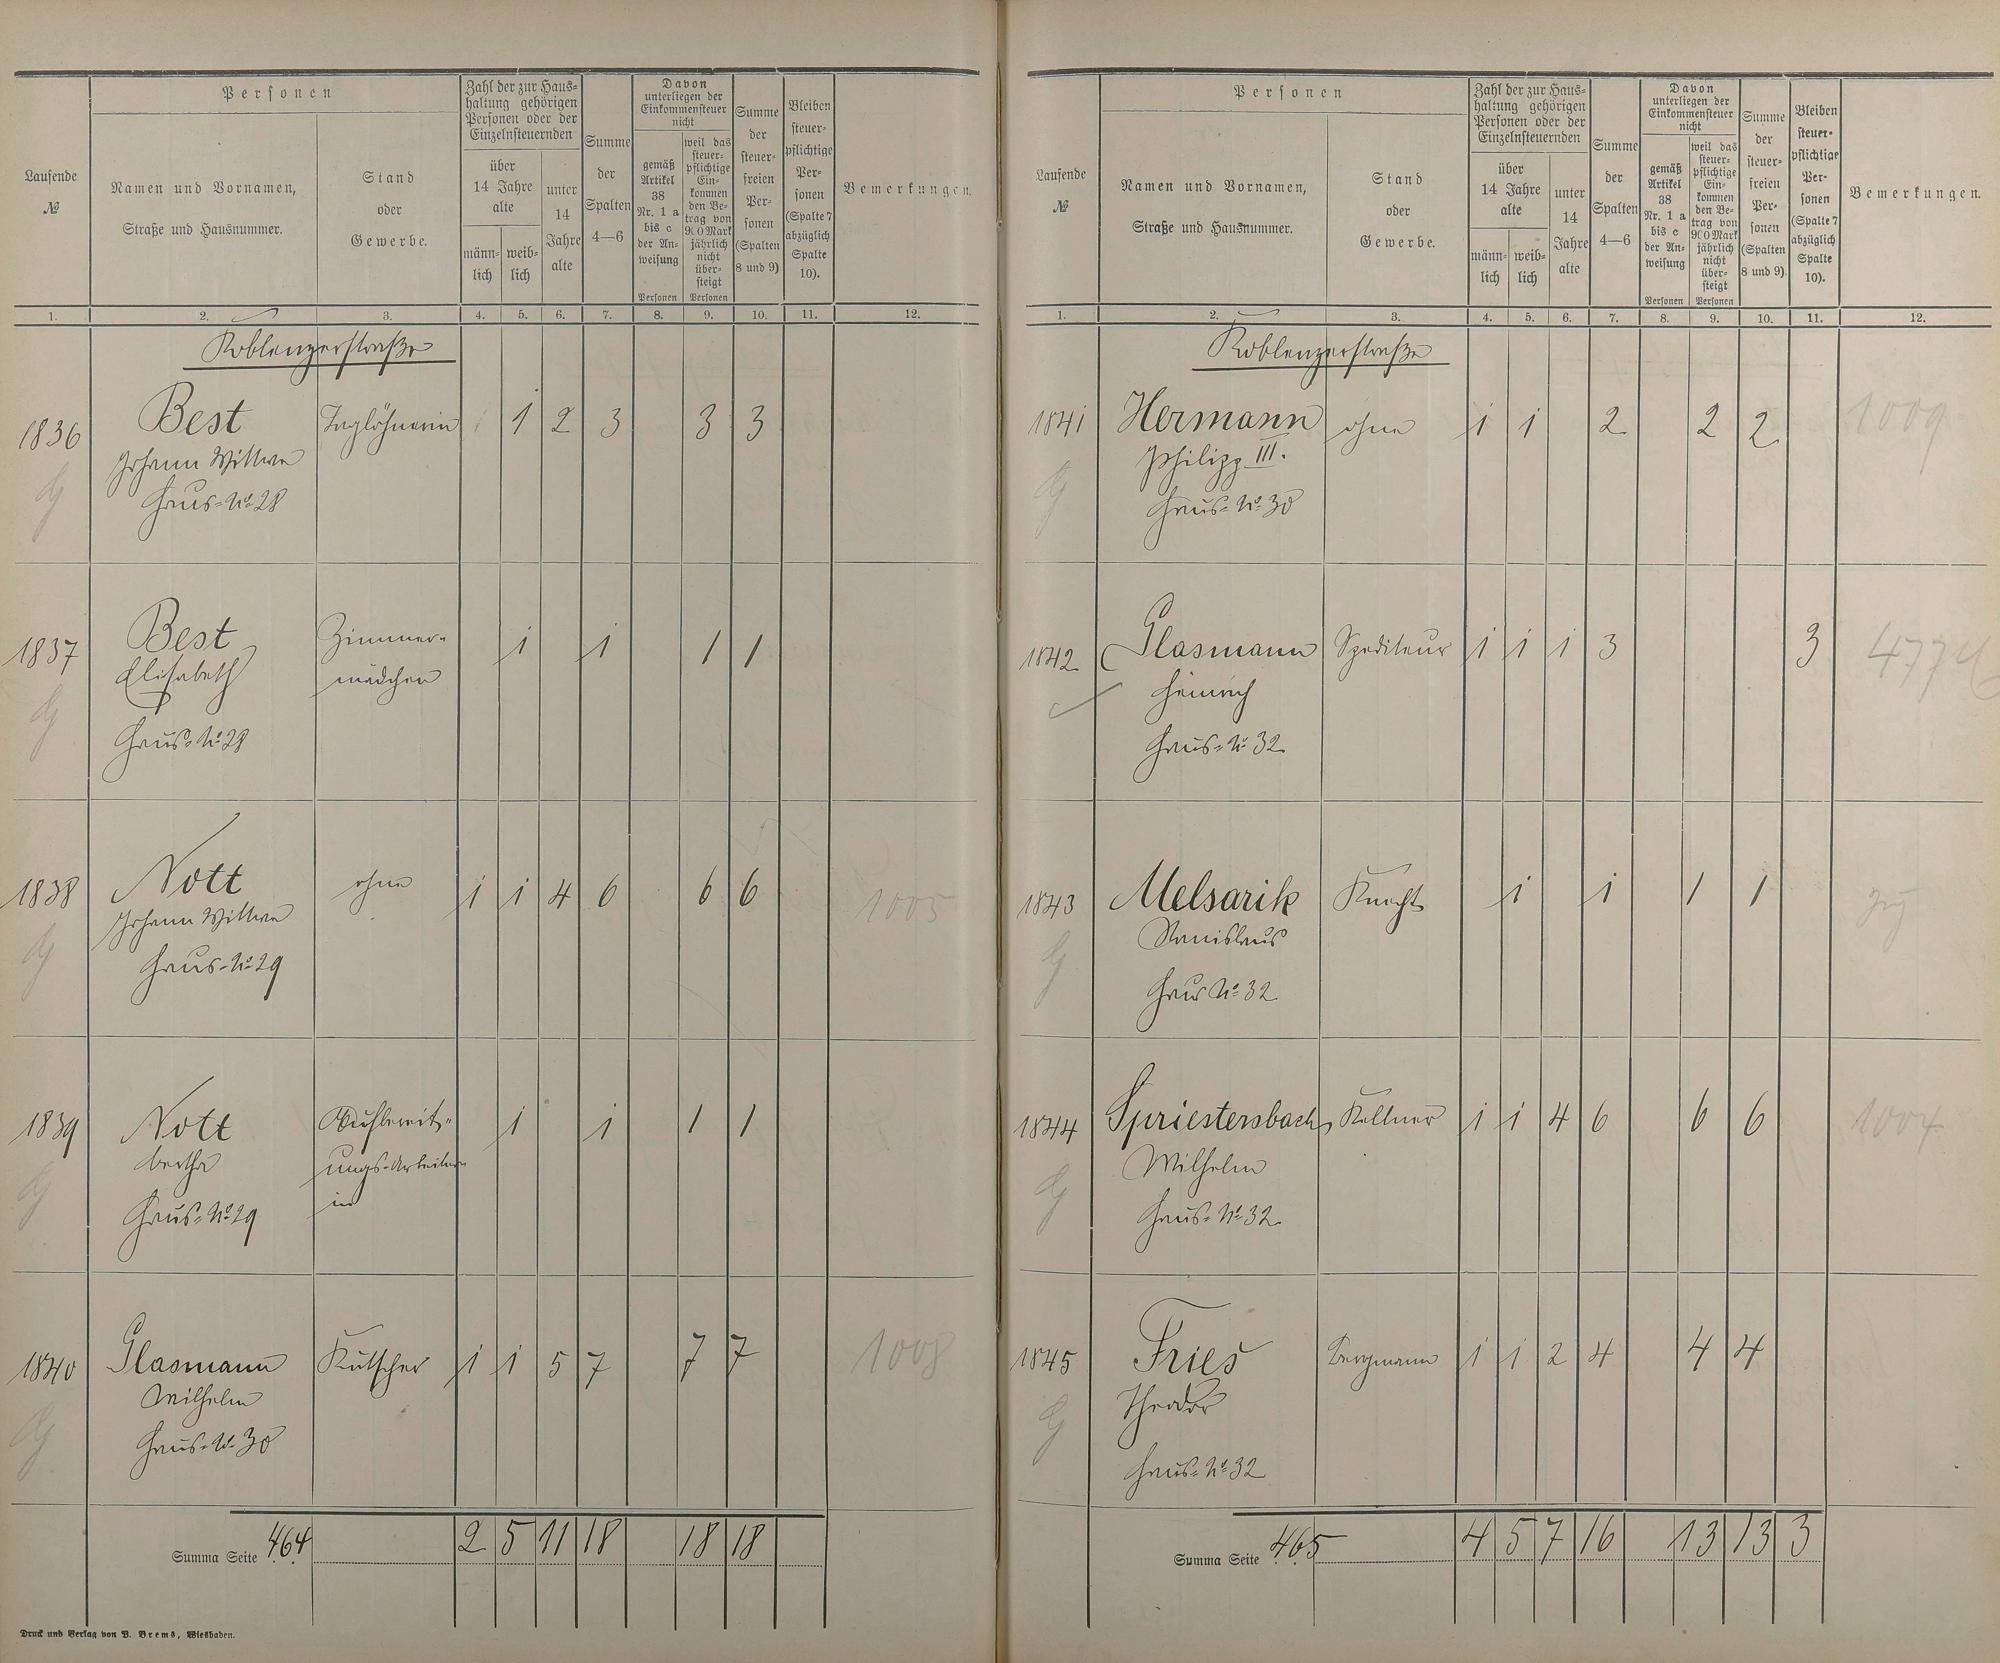 Personen
Zahl der zur Haus=
haltung gehörigen
Personen oder der
Einzelnsteuernden
Davon
unterliegen der
Einkommensteuer
nicht
Laufende
№
Namen und Vornamen,
Straße und Hausnummer.
Stand
oder
Gewerbe.
über
14 Jahre
alte
männ=
lich
weib=
lich
unter
14
Jahre
alte
Summe
der
Spalten
4—6
gemäß
Artikel
38
Nr. 1 a
bis c
der An=
weisung
Personen
weil das
steuer=
pflichtige
Ein=
kommen
den Be=
trag von
900 Mark
jährlich
nicht
über=
steigt
Personen
Summe
der
steuer=
freien
Per=
sonen
(Spalten
8 und 9)
Bleiben
steuer=
pflichtige
Per=
sonen
(Spalte 7
abzüglich
Spalte
10).
Bemerkungen.
1. 2. 3. 4. 5. 6. 7. 8. 9. 10. 11. 12.
Koblenzerstraße
1836 Best Taglöhnerin 1 2 3 3 3
Johann Wittwe
Haus=No 28
1837 Best Zimmer= 1 1 1 1
Elisabeth mädchen
Haus=No 28
1838 Nott ohne 1 1 4 6 6 6 1005
Johann Wittwe
Haus=No 29
1839 Nott 1 1 1 1
Bertha ungs=Arbeiter=
in
Haus=No 29
1840 Glasmann Kutscher 1 1 5 7 7 7 1008
Wilhelm
Haus=No 30
Summa Seite 464 2 5 11 18 18 18
Druck und Verlag von P. Brems, Wiesbaden.
Personen
Zahl der zur Haus=
haltung gehörigen
Personen oder der
Einzelnsteuernden
Davon
unterliegen der
Einkommensteuer
nicht
Laufende
№
Namen und Vornamen,
Straße und Hausnummer.
Stand
oder
Gewerbe.
über
14 Jahre
alte
männ=
lich
weib=
lich
unter
14
Jahre
alte
Summe
der
Spalten
4—6
gemäß
Artikel
38
Nr. 1 a
bis c
der An=
weisung
Personen
weil das
steuer=
pflichtige
Ein=
kommen
den Be=
trag von
900 Mark
jährlich
nicht
über=
steigt
Personen
Summe
der
steuer=
freien
Per=
sonen
(Spalten
8 und 9)
Bleiben
steuer=
pflichtige
Per=
sonen
(Spalte 7
abzüglich
Spalte
10).
Bemerkungen.
1. 2. 3. 4. 5. 6. 7. 8. 9. 10. 11. 12.
Koblenzerstraße
1841 Hermann ohne 1 1 2 2 2 1009
Philipp III.
Haus=No 30
1842 Glasmann Spediteur 1 1 1 3 3 477
Heinrich
Haus=No 32
1843 Melsarik Knecht 1 1 1 1
Stanislaus
Haus No 32
1844 Spriestersbach Kellner 1 1 4 6 6 6 1004
Wilhelm
Haus=No 32
1845 Fries Bergmann 1 1 2 4 4 4
Theodor
Haus=No 32
Summa Seite 465 4 5 7 16 13 13 3